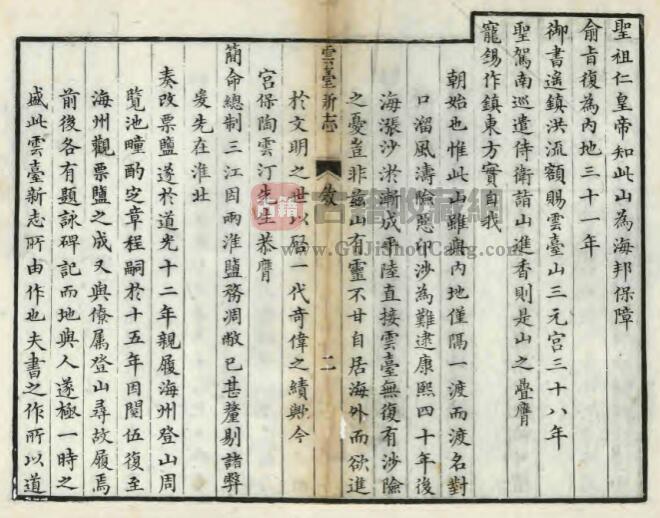 聖祖仁皇帝知此山為海邦保障
俞旨復為內地三十一年
御書遙鎮洪流額賜雲臺山三元宮三十八年
聖駕南巡遣侍衛詣山進香則是山之疊膺
寵錫作鎮東方實自我
朝始也惟此山雖與內地僅隔一渡而渡名對
口溜風濤險惡卬沙為難逮康熙四十年後
海漲沙淤漸成平陸直接雲臺無復有涉險
之憂豈非茲山有靈不甘自居海外而欲進
於文明之世以啟一代奇偉之績歟今
雲臺新志
敘
二
宮保陶雲汀先生恭膺
簡命總制三江因兩淮鹽務凋敝已甚釐剔諸弊
爰先在淮北
奏改票鹽遂於道光十二年親履海州登山周
覽池疃酌定章程嗣於十五年因閱伍復至
海州觀票鹽之成又與僚屬登山尋故履焉
前後各有題詠碑記而地與人遂極一時之
盛此雲臺新志所由作也夫書之作所以道
古籍收藏網
www.GuJiShouCang.com